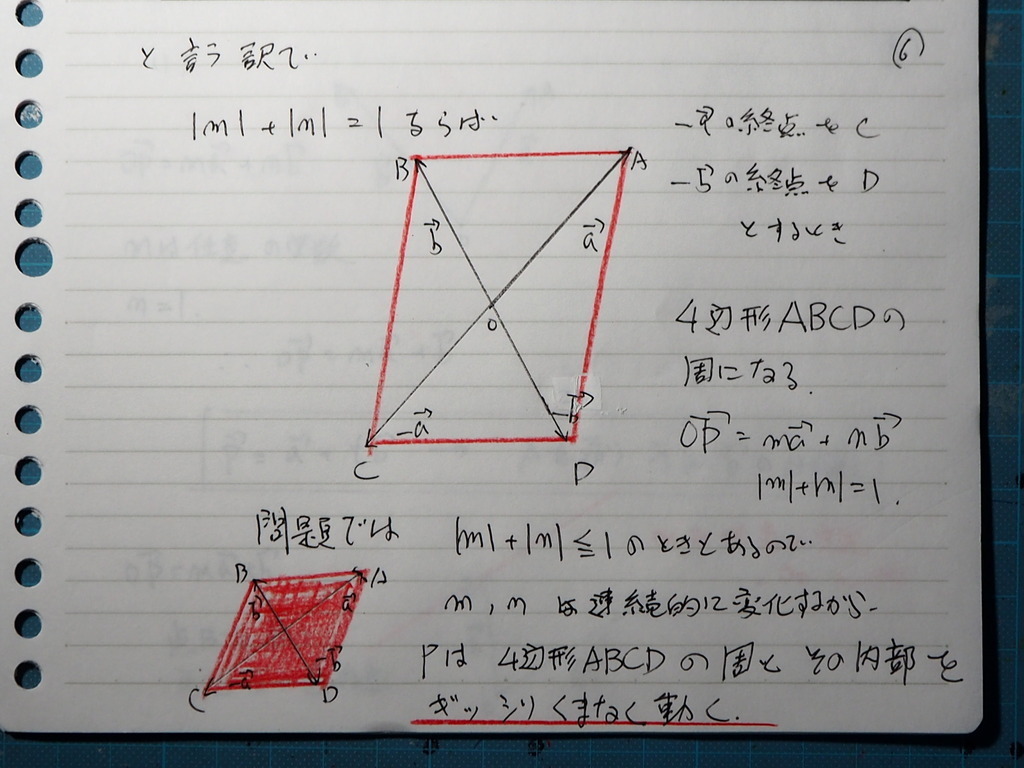 と言う訳で… ⑥
|m|+|n|=1 ならば…
-a→の終点をC
-b→の終点をD
とするとき
B A
b→ a→
O
-a→ -b→
C D
4辺形ABCDの
周になる.
OP→=ma→+nb→
|m|+|n|=1.
問題では |m|+|n|≦1のときとあるので…
m,nは連続的に変化するから…
Pは4辺形ABCDの周とその内部を
ギッシリくまなく動く.
B A
b→ a→
-a→ -b→
C D